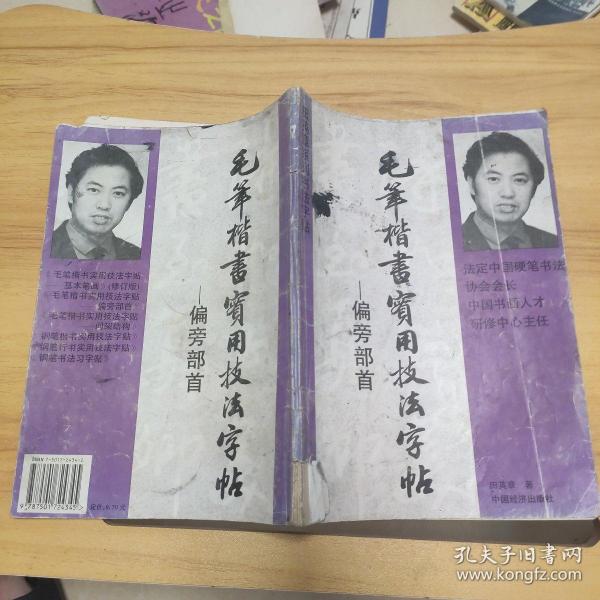 毛筆楷書實用技法字帖
—偏旁部首
《毛笔楷书实用技法字帖
—基本笔画》(修订版)
《毛笔楷书实用技法字帖
—偏旁部首》
《毛笔楷书实用技法字帖
—间架结构》
《钢笔楷书实用技法字帖》
《钢笔行书实用技法字帖》
《钢笔书法习字帖》
ISBN 7-5017-2434-2
9 787501 724345 >
定价:8.70元
毛筆楷書實用技法字帖
—偏旁部首
法定中国硬笔书法
协会会长
中国书画人才
研修中心主任
田英章 著
中国经济出版社
孔夫子旧书网
www.kongfz.com